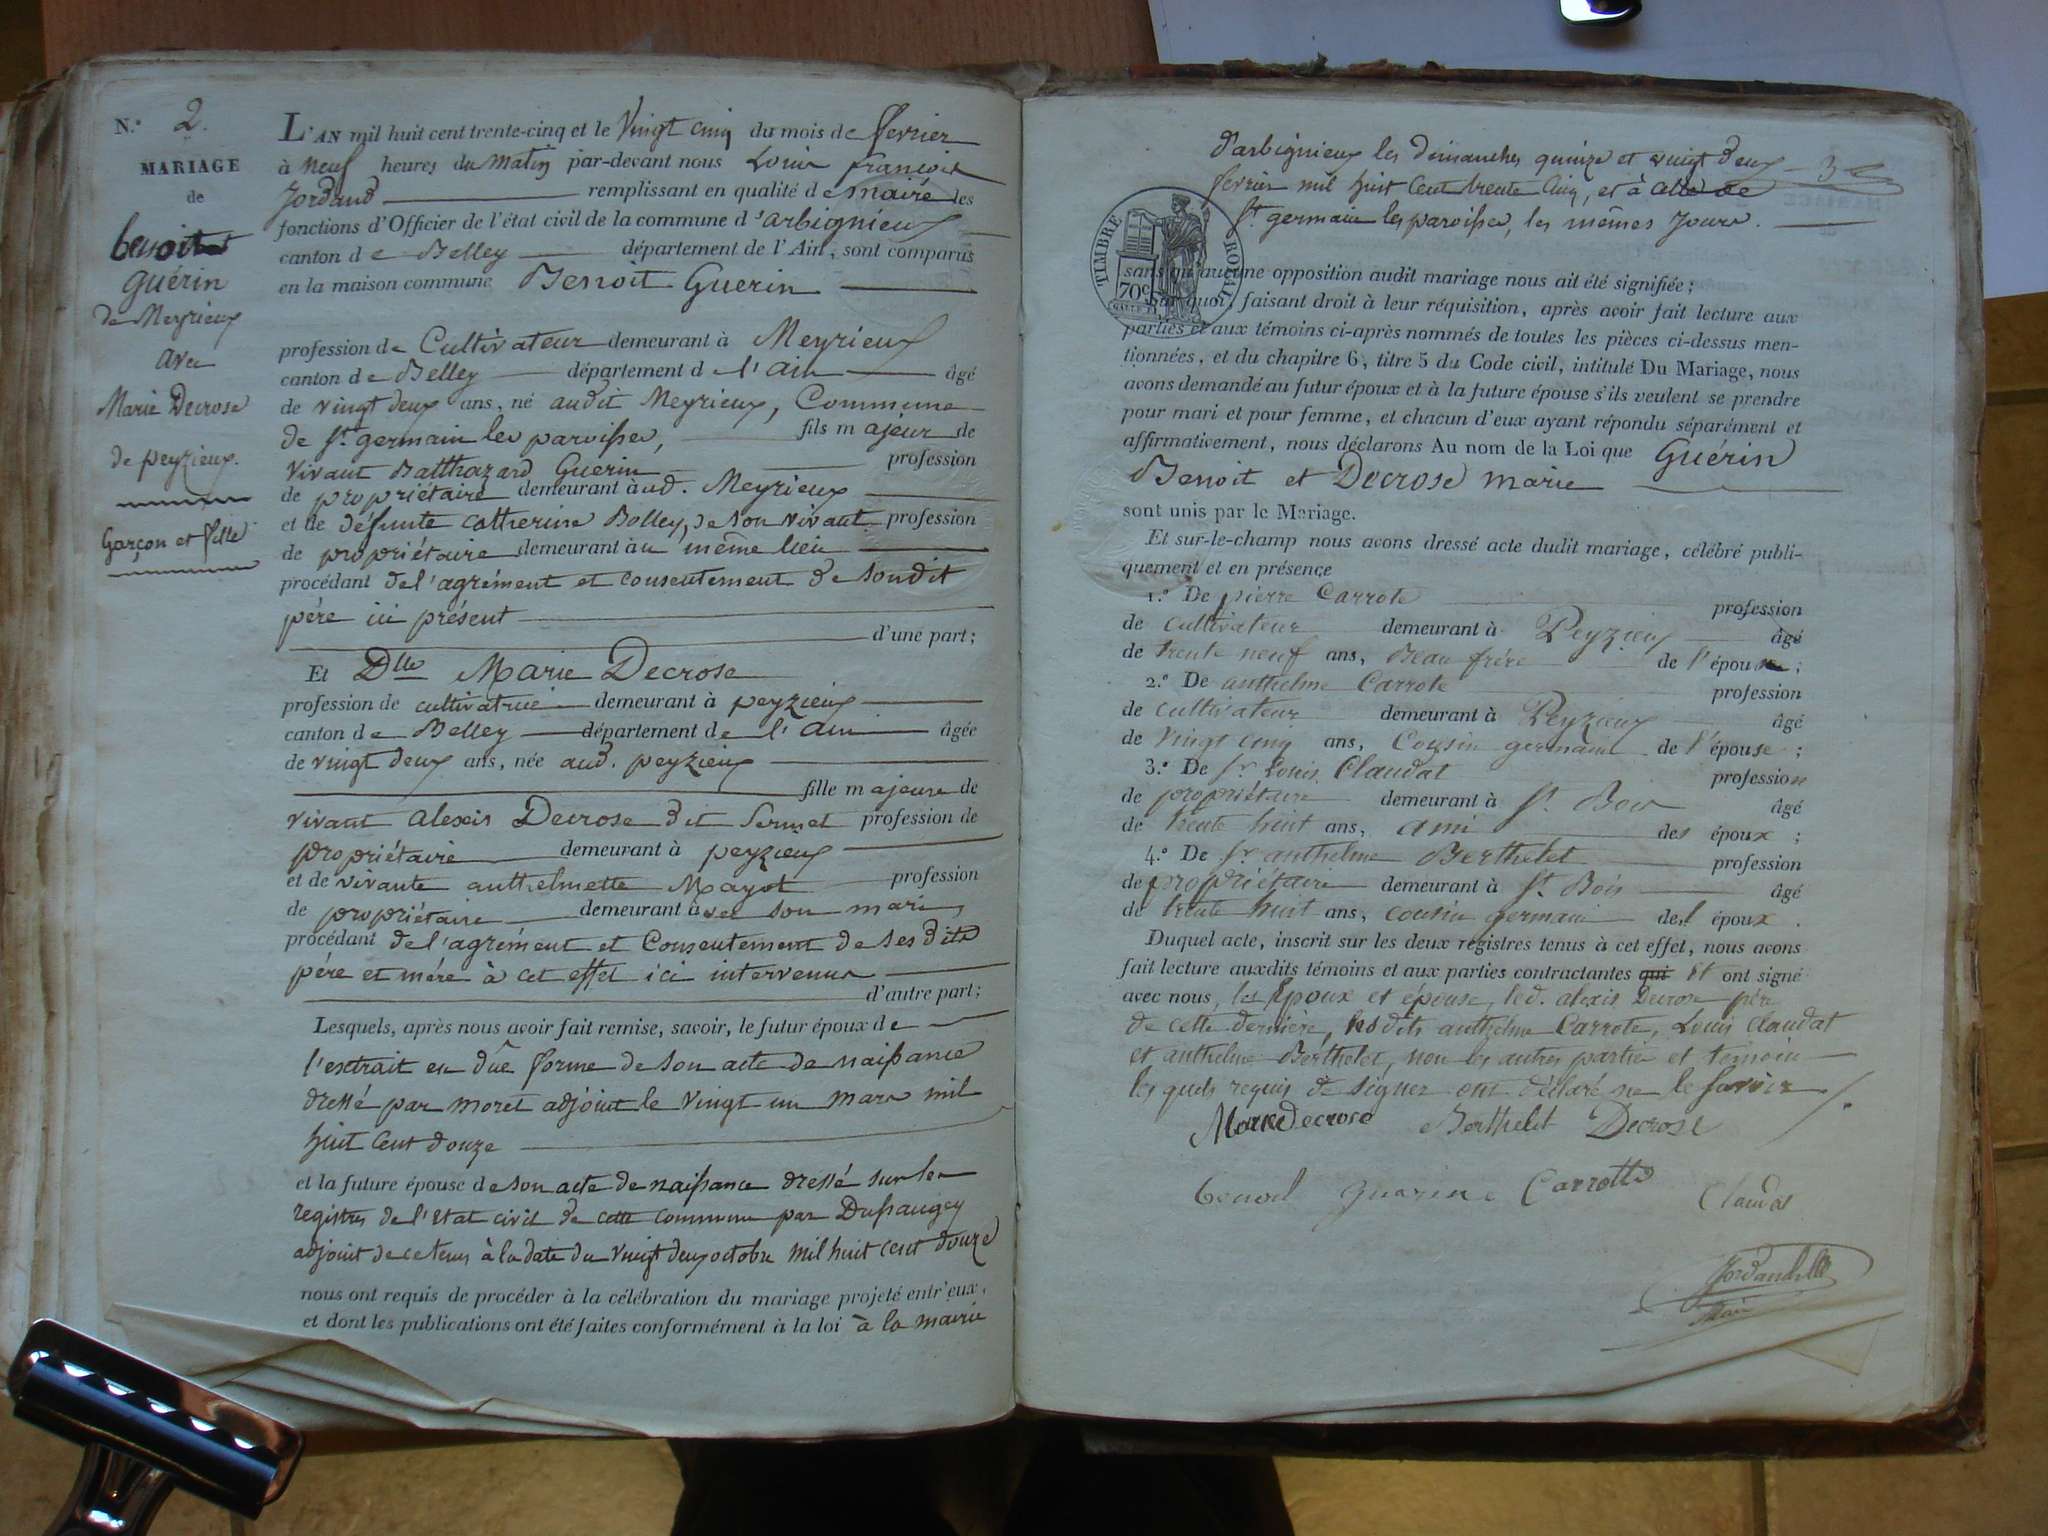 N.° 2.
MARIAGE
de
benoit
guérin
de Meyrieux
avec
Marie Decrose
de peyzieux.
Garçon et fille
L'AN mil huit cent trente-cinq et le Vingt cinq du mois de fevrier
à neuf heures du matin par-devant nous Louis françois
Jordand remplissant en qualité de maire les
fonctions d'Officier de l'état civil de la commune d'arbignieux
canton de Belley département de l'Ain, sont comparus
en la maison commune Benoit Guerin
profession de Cultivateur demeurant à Meyrieux
canton de Belley département de l'ain âgé
de vingt deux ans, né audit Meyrieux, Commune
de St. germain les paroisses, fils majeur de
vivant Balthazard Guerin profession
de propriétaire demeurant à ud. Meyrieux
et de défunte catherine Bolley, de son vivant profession
de propriétaire demeurant au même lieu
procédant de l'agrément et consentement de son dit
père ici présent
d'une part;
Et Dlle Marie Decrose
profession de cultivatrice demeurant à peyzieux
canton de Belley département de l'ain âgée
de vingt deux ans, née aud. peyzieux
fille majeure de
vivant alexis Decrose dit Sermet profession de
propriétaire demeurant à peyzieux
et de vivante anthelmette Mayot profession
de propriétaire demeurant avec son mari,
procédant de l'agrément et Consentement de ses dits
père et mère à cet effet ici intervenus
d'autre part;
Lesquels, après nous avoir fait remise, savoir, le futur époux de
l'extrait en due forme de son acte de naissance
dressé par moret adjoint le vingt un mars mil
huit cent douze
et la future épouse de son acte de naissance dressé sur les
registres de l'Etat civil de cette commune par Dussaugey
adjoint de ce tems à la date du vingt deux octobre mil huit cent douze
nous ont requis de procéder à la célébration du mariage projeté entr'eux,
et dont les publications ont été faites conformément à la loi à la mairie
d'arbignieux les dimanches quinze et vingt deux
fevrier mil huit cent trente cinq, et à celle de
St. germain les paroisses, les mêmes jours.
3
TIMBRE ROYAL
70c
sans qu'aucune opposition audit mariage nous ait été signifiée;
Sur quoi, faisant droit à leur réquisition, après avoir fait lecture aux
parties et aux témoins ci-après nommés de toutes les pièces ci-dessus men-
tionnées, et du chapitre 6, titre 5 du Code civil, intitulé Du Mariage, nous
avons demandé au futur époux et à la future épouse s'ils veulent se prendre
pour mari et pour femme, et chacun d'eux ayant répondu séparément et
affirmativement, nous déclarons Au nom de la Loi que Guérin
Benoit et Decrose marie
sont unis par le Mariage.
Et sur-le-champ nous avons dressé acte dudit mariage, célébré publi-
quement et en présence
1.° De pierre Carrote profession
de cultivateur demeurant à Peyzieux âgé
de trente neuf ans, Beau frère de l'épouse;
2.° De anthelme Carrote profession
de cultivateur demeurant à Peyzieux âgé
de vingt cinq ans, Cousin germain de l'épouse;
3.° De Sr. Louis Claudat profession
de propriétaire demeurant à St. Bois âgé
de trente huit ans, ami des époux;
4.° De Sr. anthelme Berthelet profession
de propriétaire demeurant à St. Bois âgé
de trente huit ans, cousin germain de l'époux.
Duquel acte, inscrit sur les deux registres tenus à cet effet, nous avons
fait lecture auxdits témoins et aux parties contractantes qui Et ont signé
avec nous, les Epoux et épouse, led. alexis Decrose père
de cette dernière, lesdits anthelme Carrote, Louis Claudat
et anthelme Berthelet, non les autres parties et temoin
lesquels requis de signer ont déclaré ne le savoir
Marie decrose Berthelet Decrose
benoit guerin Carrotte Claudat
Jordand
Maire